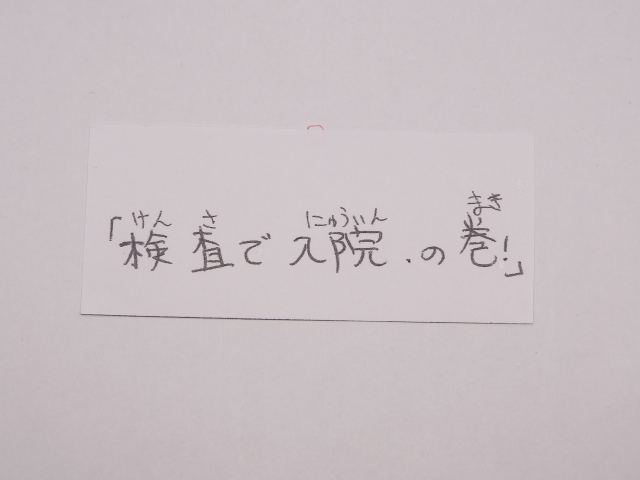 けん さ にゅういん まき
「検査で入院.の巻!」